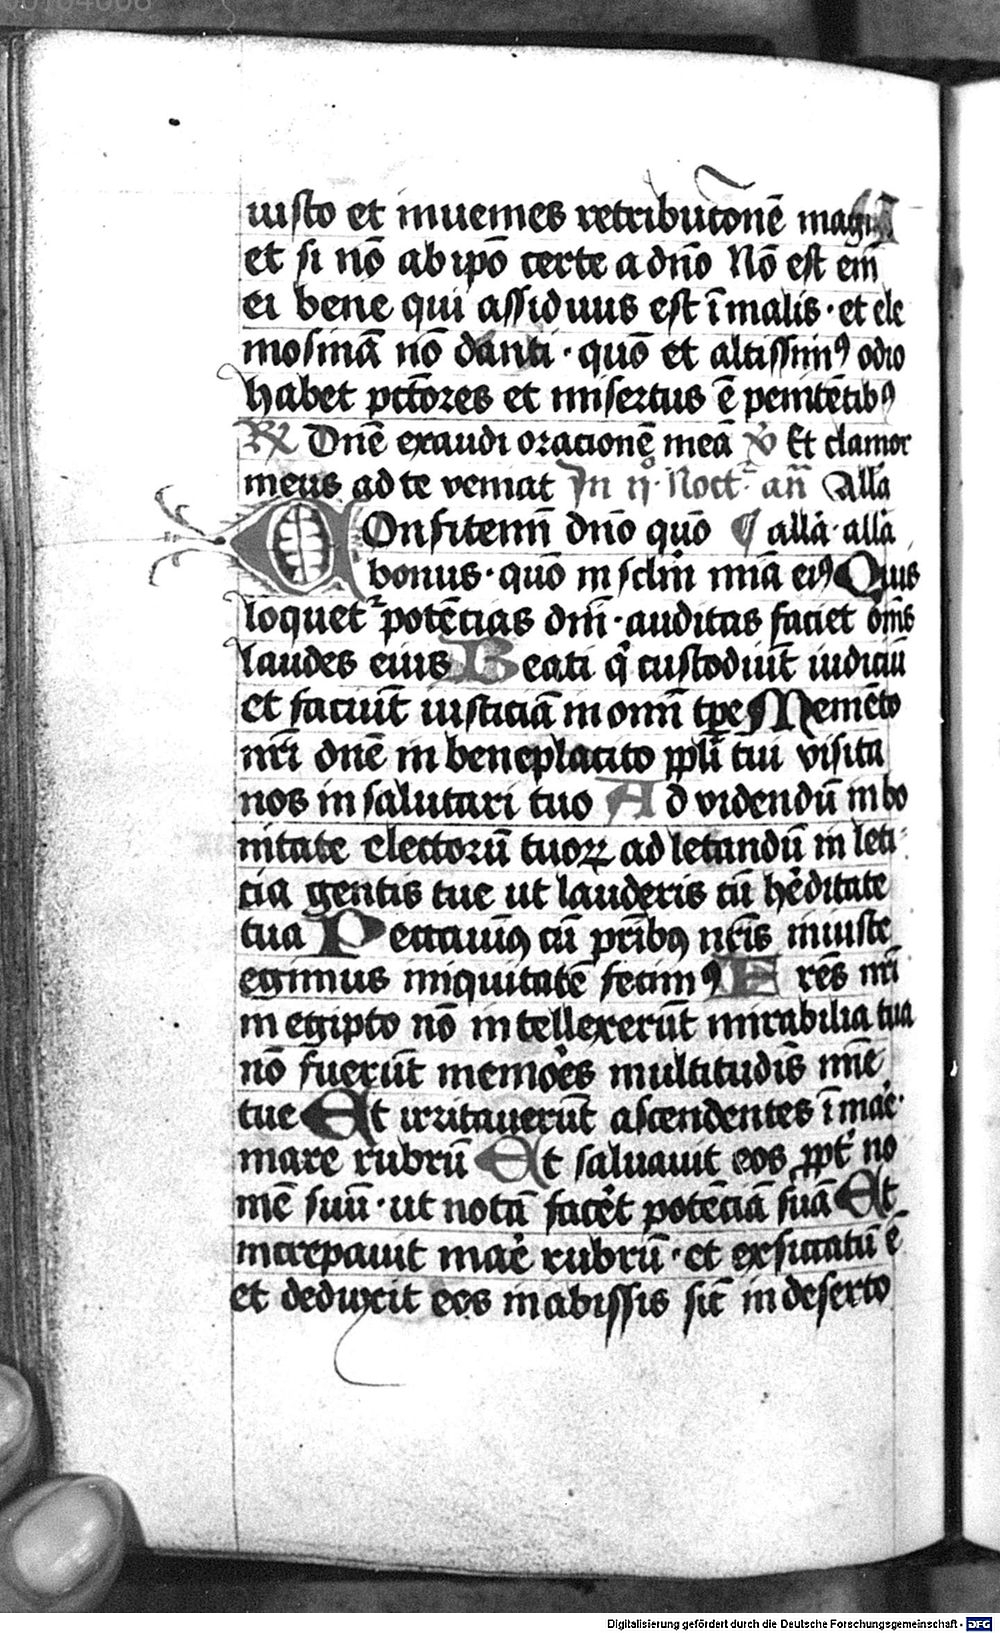 iusto et inuenies retributōnē magnā
et si nō ab ipō certe a dn̄o Nō est em̄
ei bene qui assiduus est ī malis · et ele
mosinā nō danti · quō et altissimꝰ odio
habet pctōres et misertus ē penitētibꝰ
℟ Dn̄e exaudi oracionē meā ℣ Et clamor
meus ad te veniat In ij° Noct᷒ an̄ Alla
Confitemī dn̄o quō ¶ alla · alla
bonus · quō in sclm̄ mīa eiꝰ Quis
loquet᷒ potēcias dnī · auditas faciet om̄s
laudes eius Beati q̇ custodiūt iudiciū
et faciūt iusticiā in omī tp̄e Memēto
nrī dn̄e in beneplacito ppl̄i tui visita
nos in salutari tuo Ad videndū in bo
nitate electorū tuoꝝ ad letandū in leti
cia gentis tue ut lauderis cū he᷒ditate
tua Peccauimꝰ cū pr̄ibꝰ nr̄is iniuste
egimus iniquitatē fecimꝰ Pr̄es nrī
in egipto nō intellexerūt mirabilia tua
nō fuerūt memo᷒es multitudīs mīe
tue Et irritauerūt ascendentes ī mae᷒
mare rubrū Et saluauit eos ꝓpt᷒ no
mē suū · ut notā face᷒t potēciā suā Et
increpauit mae᷒ rubrū · et exsiccatū ē
et deduxit eos in abissis sic̄ in deserto
Digitalisierung gefördert durch die Deutsche Forschungsgemeinschaft - DFG